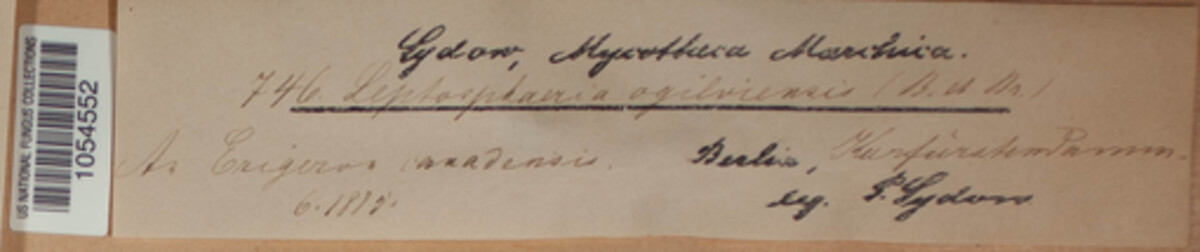 US NATIONAL FUNGUS COLLECTIONS
1054552
Sydow, Mycotheca Marchica.
746. Leptosphaeria ogilviensis (B. et Br.)
An Erigeron canadensis. Berlin, Kurfürstendamm.
6. leg. P. Sydow